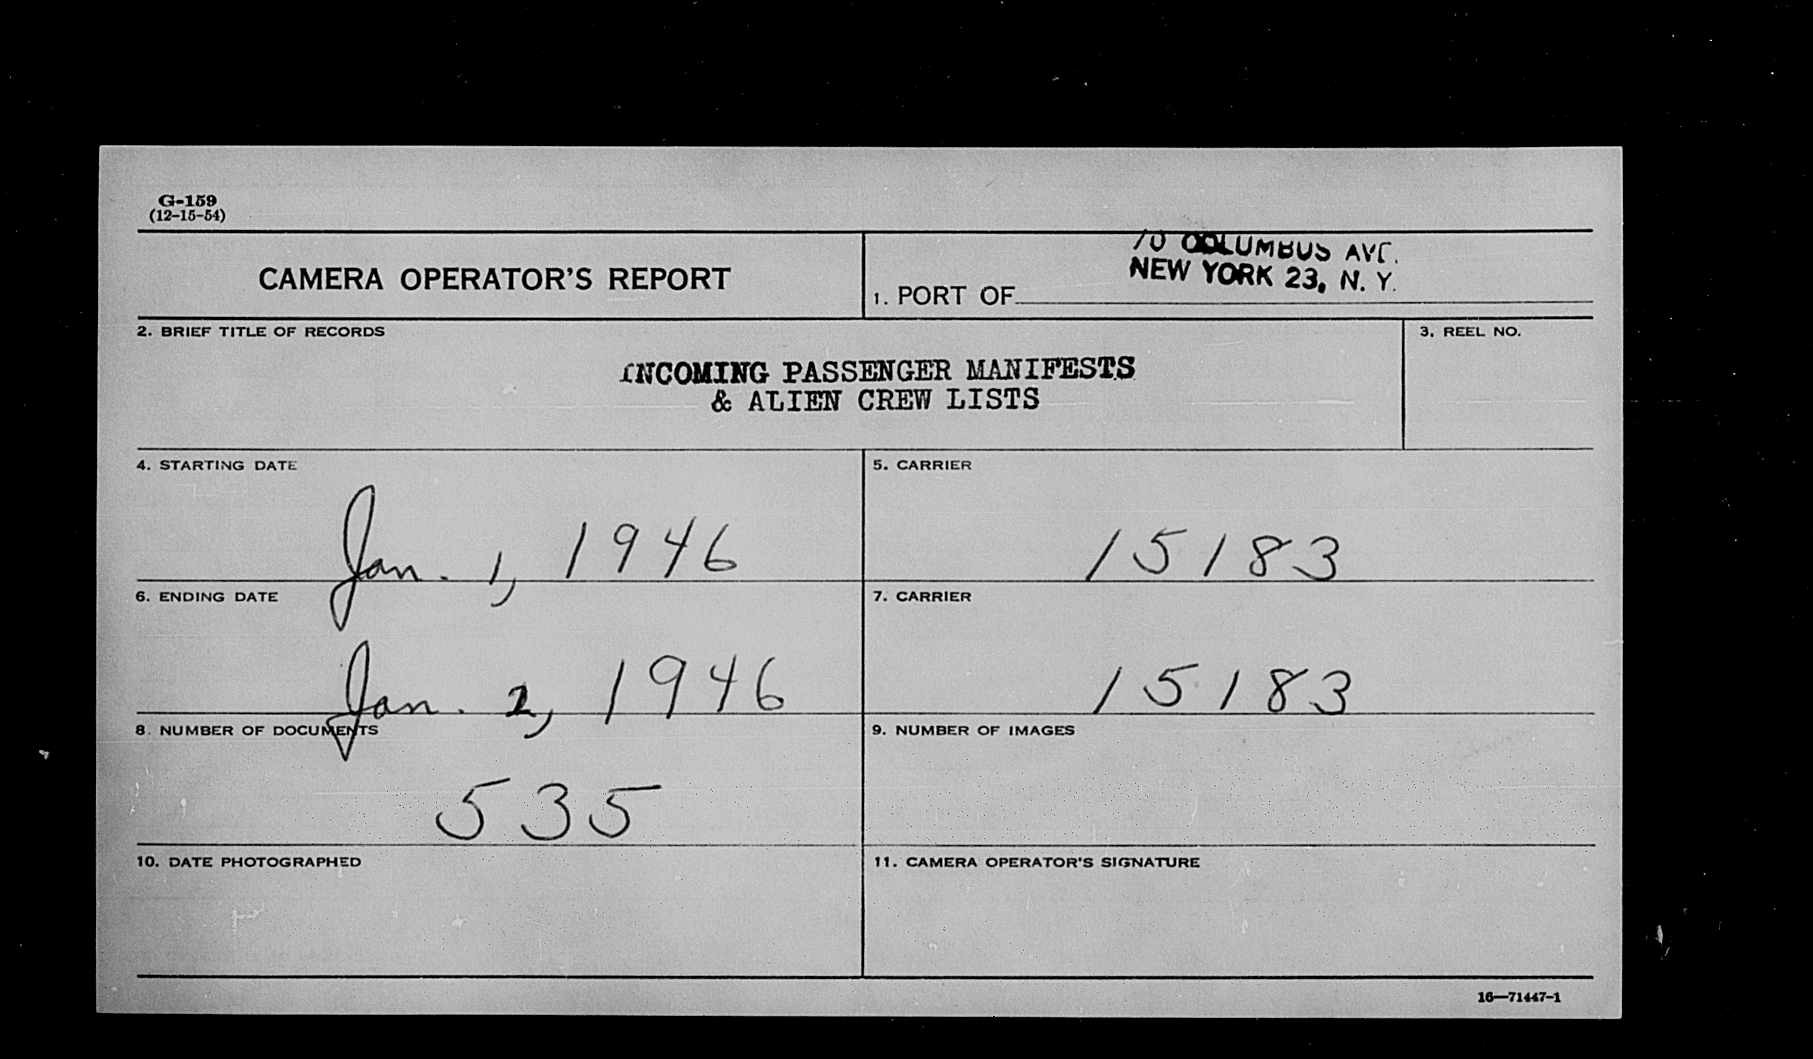 G-159
(12-15-54)
CAMERA OPERATOR'S REPORT
70 COLUMBUS AVE.
NEW YORK 23, N. Y.
1. PORT OF
2. BRIEF TITLE OF RECORDS
3. REEL NO.
INCOMING PASSENGER MANIFESTS
& ALIEN CREW LISTS
4. STARTING DATE
Jan. 1, 1946
5. CARRIER
15183
6. ENDING DATE
Jan. 2, 1946
7. CARRIER
15183
8. NUMBER OF DOCUMENTS
535
9. NUMBER OF IMAGES
10. DATE PHOTOGRAPHED
11. CAMERA OPERATOR'S SIGNATURE
16—71447-1